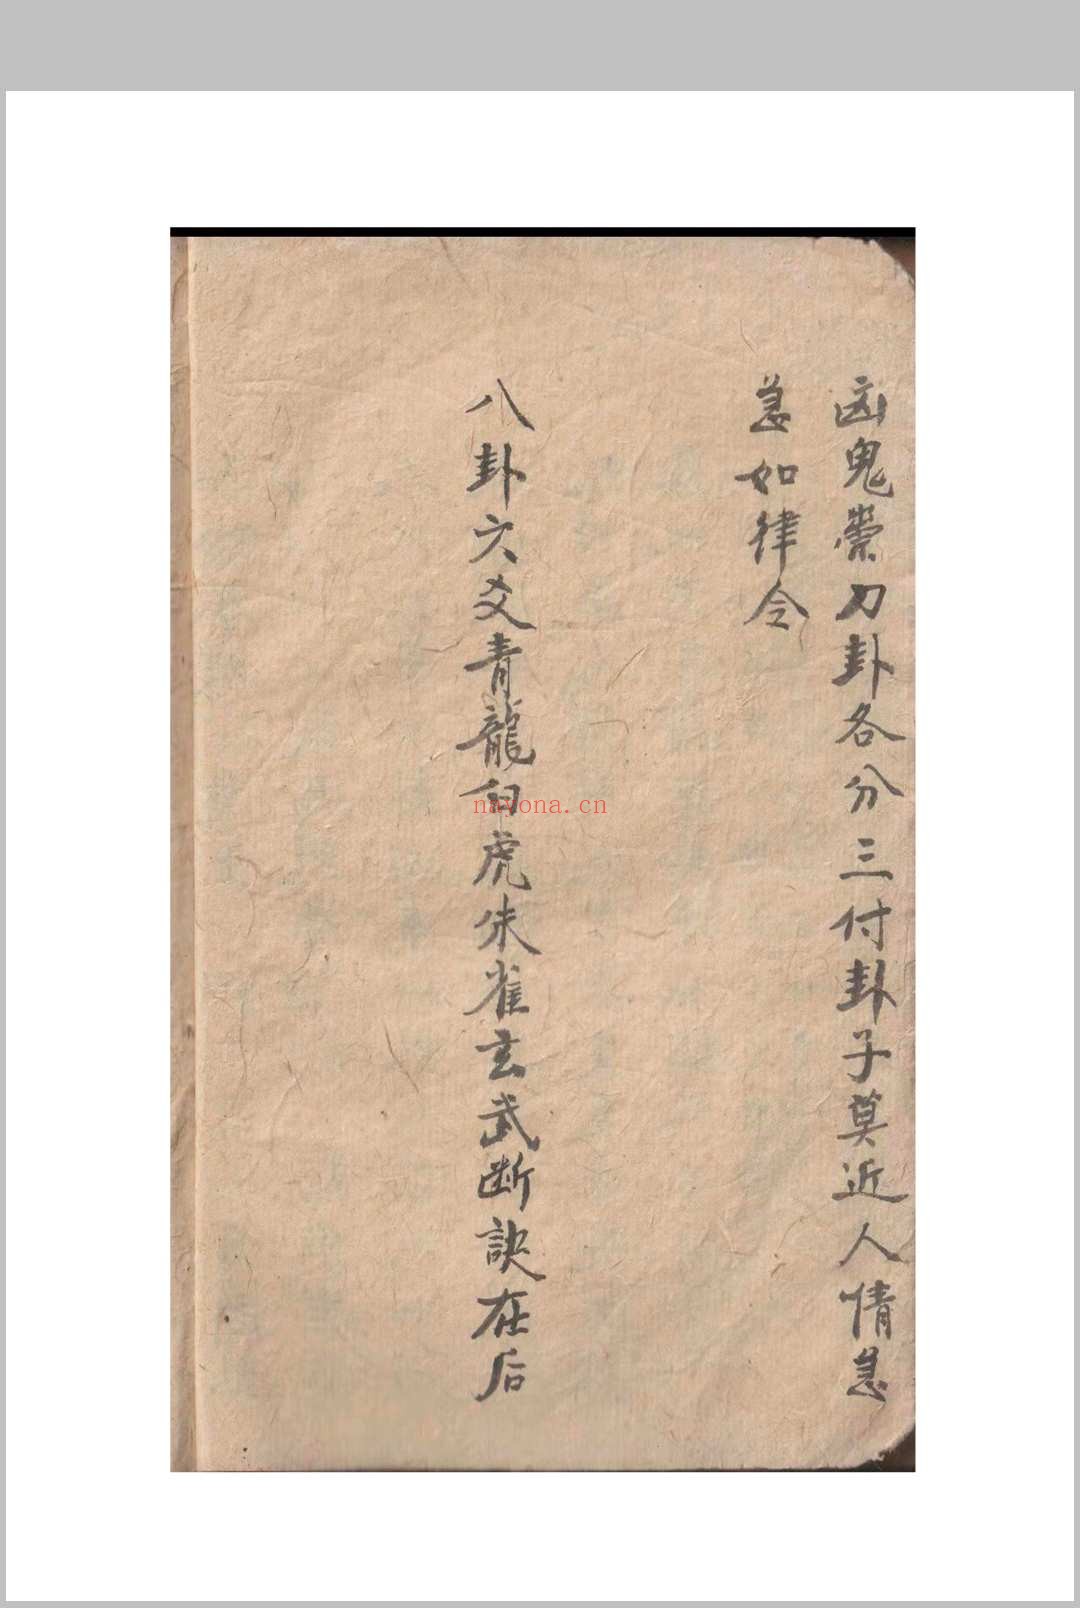 凶鬼祟刀卦各分三付卦子莫近人情急
急如律令
八卦六爻青龍白虎朱雀玄武断訣在后
nayona.cn